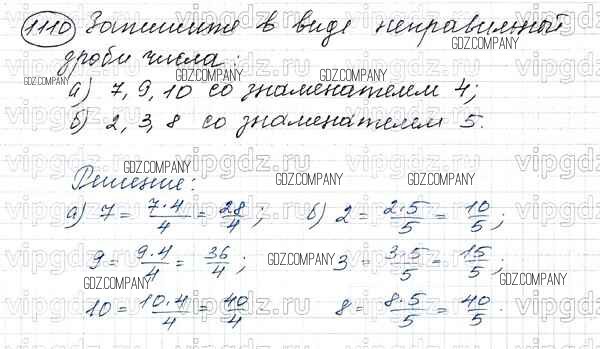 1110 Запишите в виде неправильной
дроби числа:
а) 7, 9, 10 со знаменателем 4;
б) 2, 3, 8 со знаменателем 5.
Решение:
а) 7 = 7·4/4 = 28/4; б) 2 = 2·5/5 = 10/5;
9 = 9·4/4 = 36/4; 3 = 3·5/5 = 15/5;
10 = 10·4/4 = 40/4. 8 = 8·5/5 = 40/5.
GDZ.COMPANY
vipgdz.ru